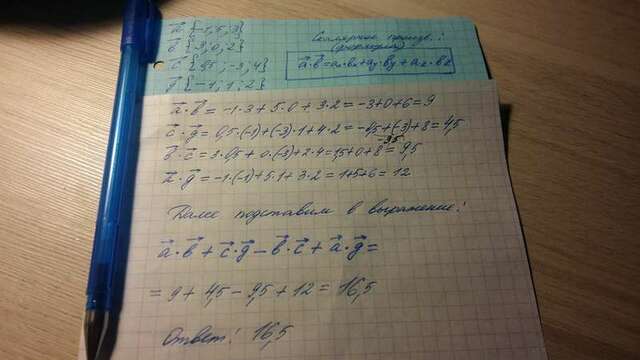 a⃗ {-1, 5, 3}
b⃗ {3, 0, 2}
c⃗ {0,5; -3, 4}
g⃗ {-1, 1, 2}
Скалярное произв.:
(формула)
a⃗·b⃗ = ax·bx + ay·by + az·bz
a⃗·b⃗ = -1·3+5·0+3·2 = -3+0+6 = 9
c⃗·g⃗ = 0,5·(-1)+(-3)·1+4·2 = -0,5+(-3)+8 = 4,5
-3,5
b⃗·c⃗ = 3·0,5 + 0·(-3)+2·4 = 1,5+0+8 = 9,5
a⃗·g⃗ = -1·(-1)+5·1+3·2 = 1+5+6 = 12
Далее подставим в выражение:
a⃗·b⃗ + c⃗·g⃗ - b⃗·c⃗ + a⃗·g⃗ =
= 9 + 4,5 - 9,5 + 12 = 16,5
Ответ: 16,5